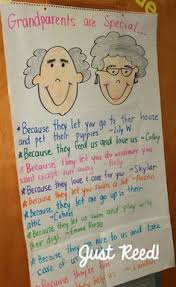 Grandparents are Special...
*Because they let you go to their house
and pet their puppies -Lily W
*Because they feed us and love us -Colley
*Because they let you do whatever you
want except run away -Billy
*Because they love & care for you -Skylar
*Because they let you
*Because they let one go up in their
attic -Cohen
*Because they let us swim and play with
their dogs -Emma
*Because they are nice to us and take
care of
*Because they're fun
Just Reed!